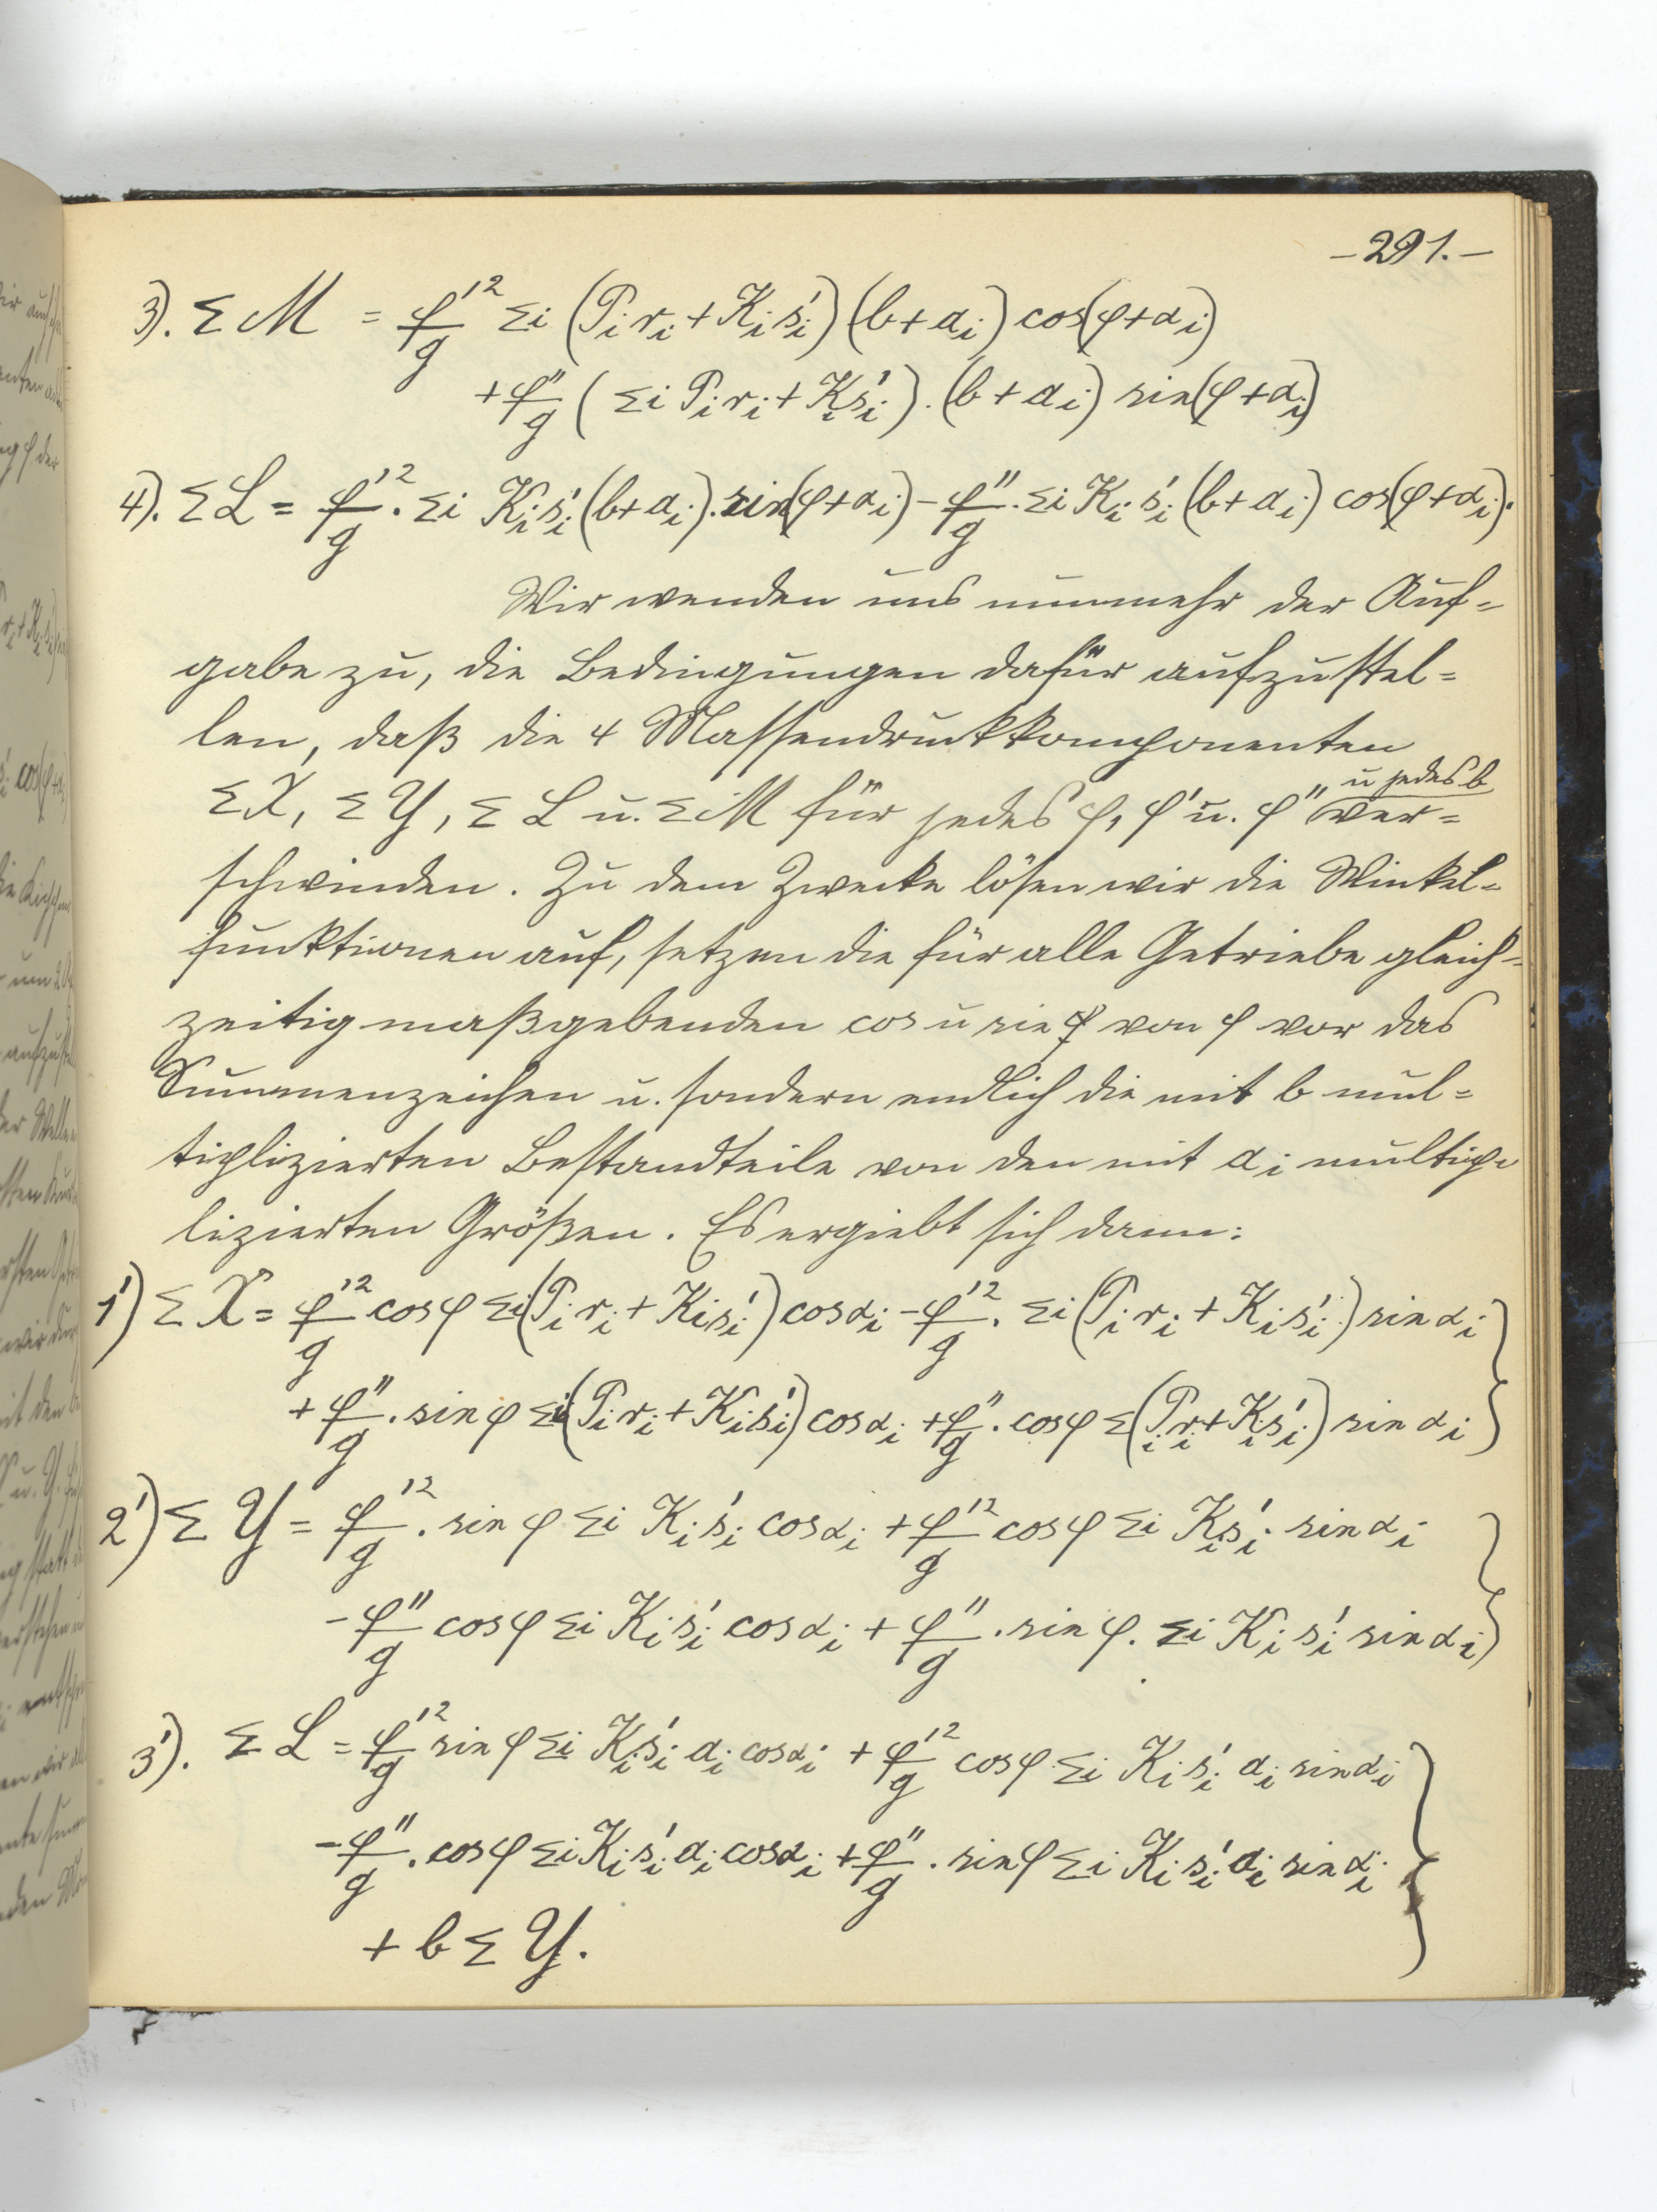 -291.-
3). Σ M = φ'²/g Σi (Pᵢ rᵢ + Kᵢ s'ᵢ) (b + aᵢ) cos(φ + αᵢ)
+ φ''/g ( Σi Pᵢ rᵢ + Kᵢ s'ᵢ ) . (b + aᵢ) sin(φ + αᵢ)
4). Σ L = φ'²/g . Σi Kᵢ s'ᵢ (b + aᵢ) . sin(φ + αᵢ) - φ''/g . Σi Kᵢ s'ᵢ (b + aᵢ) cos(φ + αᵢ).
Wir wenden uns nunmehr der Auf=
gabe zu, die Bedingungen dafür aufzustel=
len, daß die 4 Massendruckkomponenten
Σ X, Σ Y, Σ L u. Σ M für jedes φ, φ' u. φ'' u jedes b ver=
schwinden. Zu dem Zwecke lösen wir die Winkel=
funktionen auf, setzen die für alle Getriebe gleich=
zeitig maßgebenden cos u sin von φ vor das
Summenzeichen u. sondern endlich die mit b mul=
tiplizierten Bestandteile von den mit aᵢ multip=
lizierten Größen. Es ergiebt sich dann:
1') Σ X = φ'²/g cos φ Σi (Pᵢ rᵢ + Kᵢ s'ᵢ) cos αᵢ - φ'²/g . Σi (Pᵢ rᵢ + Kᵢ s'ᵢ) sin αᵢ
+ φ''/g . sin φ Σi (Pᵢ rᵢ + Kᵢ s'ᵢ) cos αᵢ + φ''/g . cos φ Σ (Pᵢ rᵢ + Kᵢ s'ᵢ) sin αᵢ
2') Σ Y = φ'²/g . sin φ Σi Kᵢ s'ᵢ cos αᵢ + φ'²/g cos φ Σi Kᵢ s'ᵢ sin αᵢ
- φ''/g cos φ Σi Kᵢ s'ᵢ cos αᵢ + φ''/g . sin φ . Σi Kᵢ s'ᵢ sin αᵢ
3'). Σ L = φ'²/g sin φ Σi Kᵢ s'ᵢ aᵢ cos αᵢ + φ'²/g cos φ Σi Kᵢ s'ᵢ aᵢ sin αᵢ
- φ''/g . cos φ Σi Kᵢ s'ᵢ aᵢ cos αᵢ + φ''/g . sin φ Σi Kᵢ s'ᵢ aᵢ sin αᵢ
+ b Σ Y.